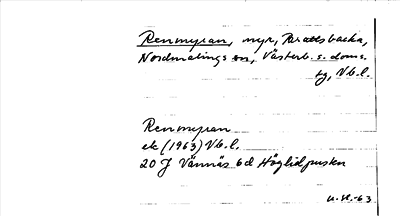 Renmyran, myr, Brattsbacka,
Nordmalings sn, Västerb. s. doms.
sg, Vb.l.
Renmyran
ek (1963) Vb.l.
20 J Vännäs 6d Höglidgrusken
U.H.-63